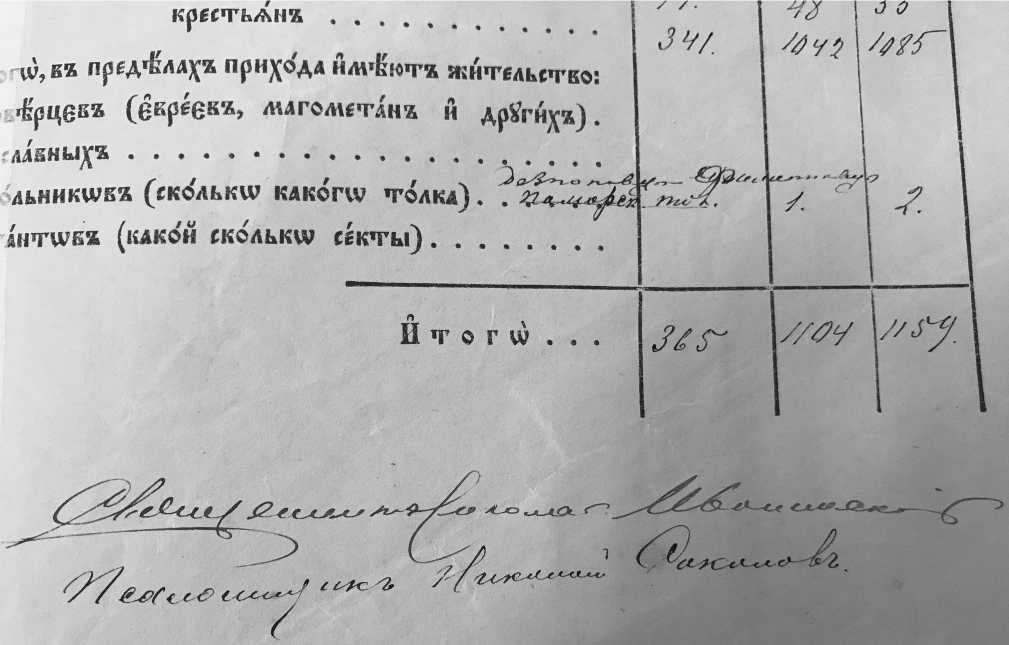 крестьѧ́нъ . . . . . . . . . . . . 341. 1042 1085
огѡ̀, въ предѣ́лахъ прихо́да и҆мѣ́ютъ жи́тельство:
вѣ́рцєвъ (є҆вре́євъ, магомета́нъ и҆ дрꙋги́хъ).
сла́вныхъ . . . . . . . . . . . . . . . . . . . .
о́льникѡвъ (ско́лькѡ како́гѡ то́лка). . Поморск. 1. 2.
та́нтѡвъ (како́й ско́лькѡ се́кты) . . . . . . . .
И҆тогѡ̀ . . . 365 1104 1159.
Священник
Псаломщикъ Николай Соколовъ.